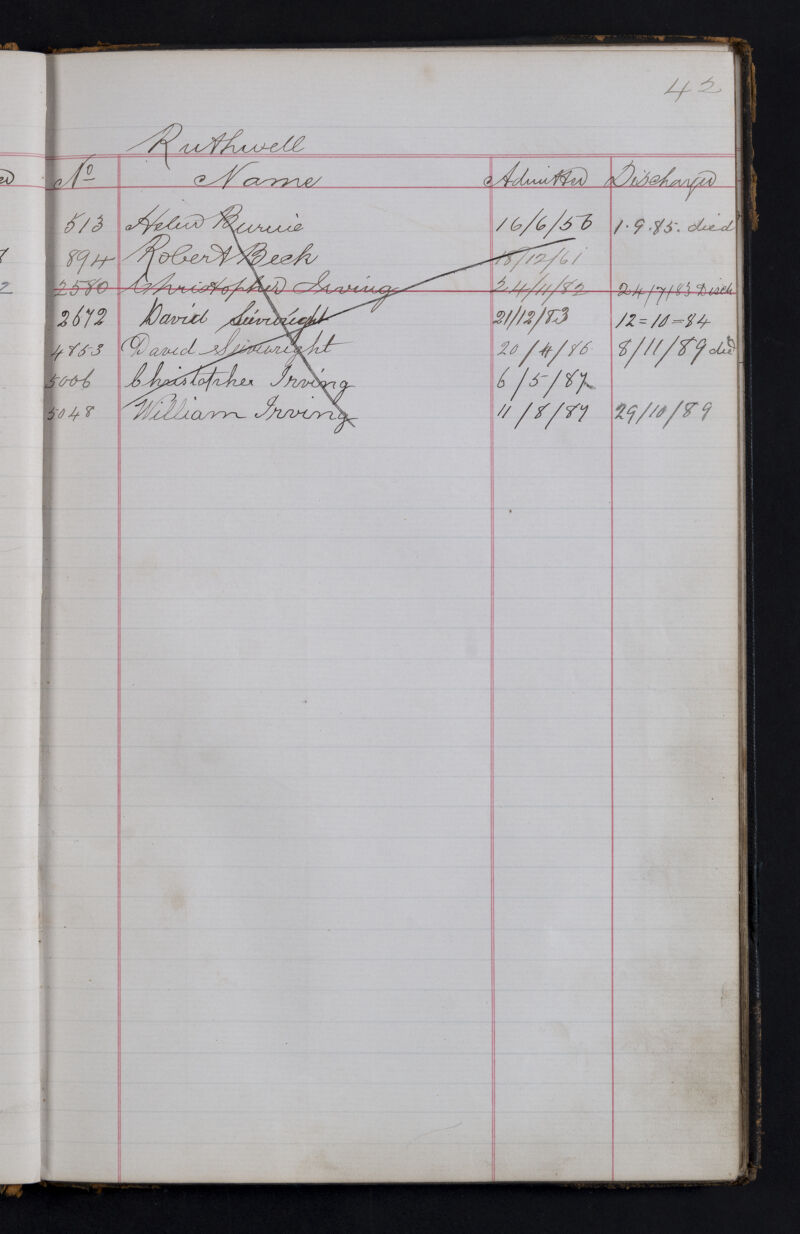 42
Ruthwell
No Name Admitted Discharged
513 Helen Burnie 16/6/56 1.9.85. died
894 Robert Beck 18/12/61
2580 Christopher Irving 24/11/82 24/7/83 Disch
2672 David Sievwright 21/12/83 12=10=84
4853 David Sievwright 20/4/86 8/11/89 died
5006 Christopher Irving 6/5/87
5048 William Irving 11/8/87 29/10/89